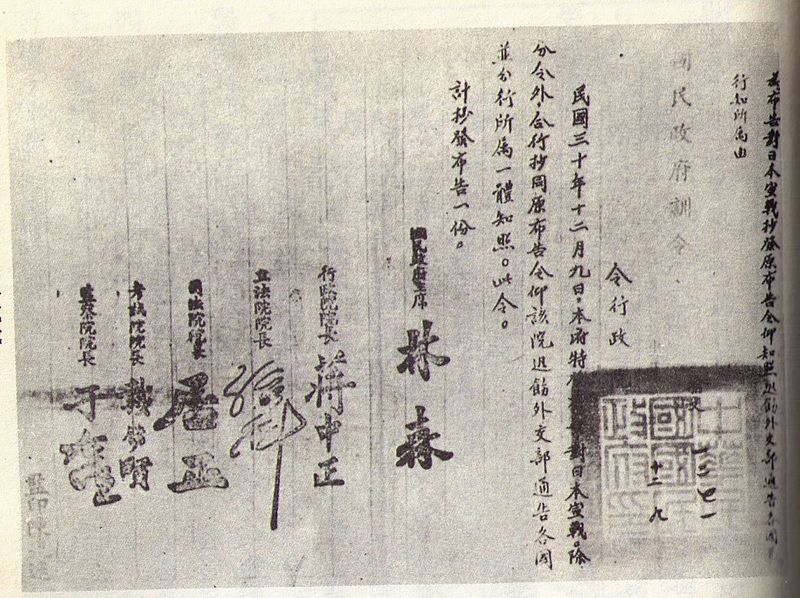 為布告對日本宣戰抄發原布告令仰知照迅飭外交部通告各國
行知所屬由
國民政府訓令
令行政
民國三十年十二月九日，本府特 對日本宣戰。除
分令外，合行抄同原布告令仰該院迅飭外交部通告各國
並分行所屬一體知照。此令。
計抄發布告一份。
國民政府主席 林森
行政院院長 蔣中正
立法院院長 孫科
司法院院長 居正
考試院院長 戴傳賢
監察院院長 于右任
十二 九